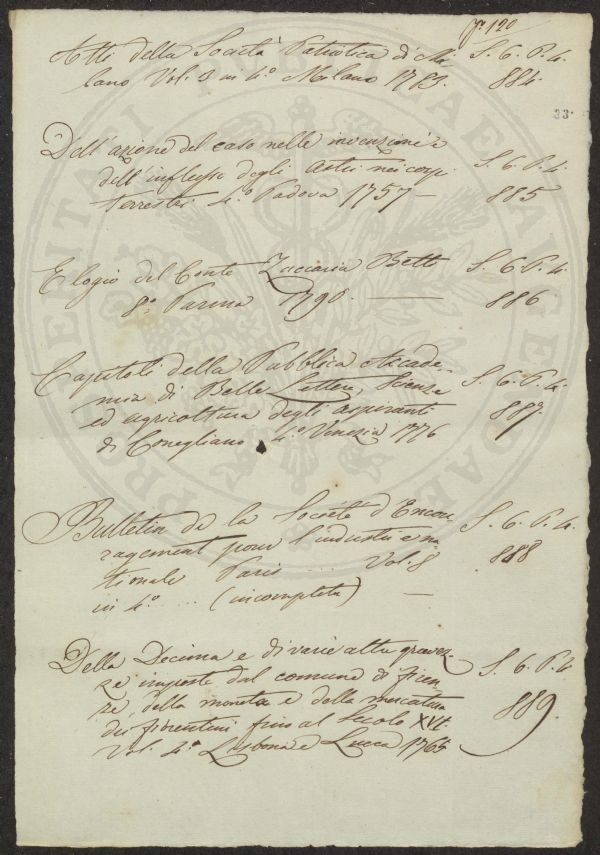 fr. 120
Atti della Società Patriotica di Mi- S. 6. P. 4.
lano Vol. 3 in 4.° Milano 1783. 884.
33.
Dell'azione del caso nelle invenzioni e
dell'influsso degli Astri nei corpi S. 6. P. 4.
Terrestri 4.° Padova 1757 — 885
Elogio del Conte Zaccaria Betti S. 6. P. 4.
8.° Parma 1790. — 886
Capitoli della Pubblica Accade-
mia di Belle Lettere, Scienze S. 6. P. 4.
ed agricoltura degli aspiranti 887.
di Conegliano 4.° Venezia 1776
Bulletin de la Société d'Encou S. 6. P. 4.
ragement pour l'industrie na 888
tionale Paris .... Vol. 8
in 4.° ... (incompleta) —
Della Decima e di varie altre gravez-
ze imposte dal comune di Firen S. 6. P. 4
ze, della moneta e della mercatura 889.
dei fiorentini fino al Secolo XVI.
Vol. 4.° Lisbona e Lucca 1765
PRO VERITATI PVBLICAE AVGENDAE